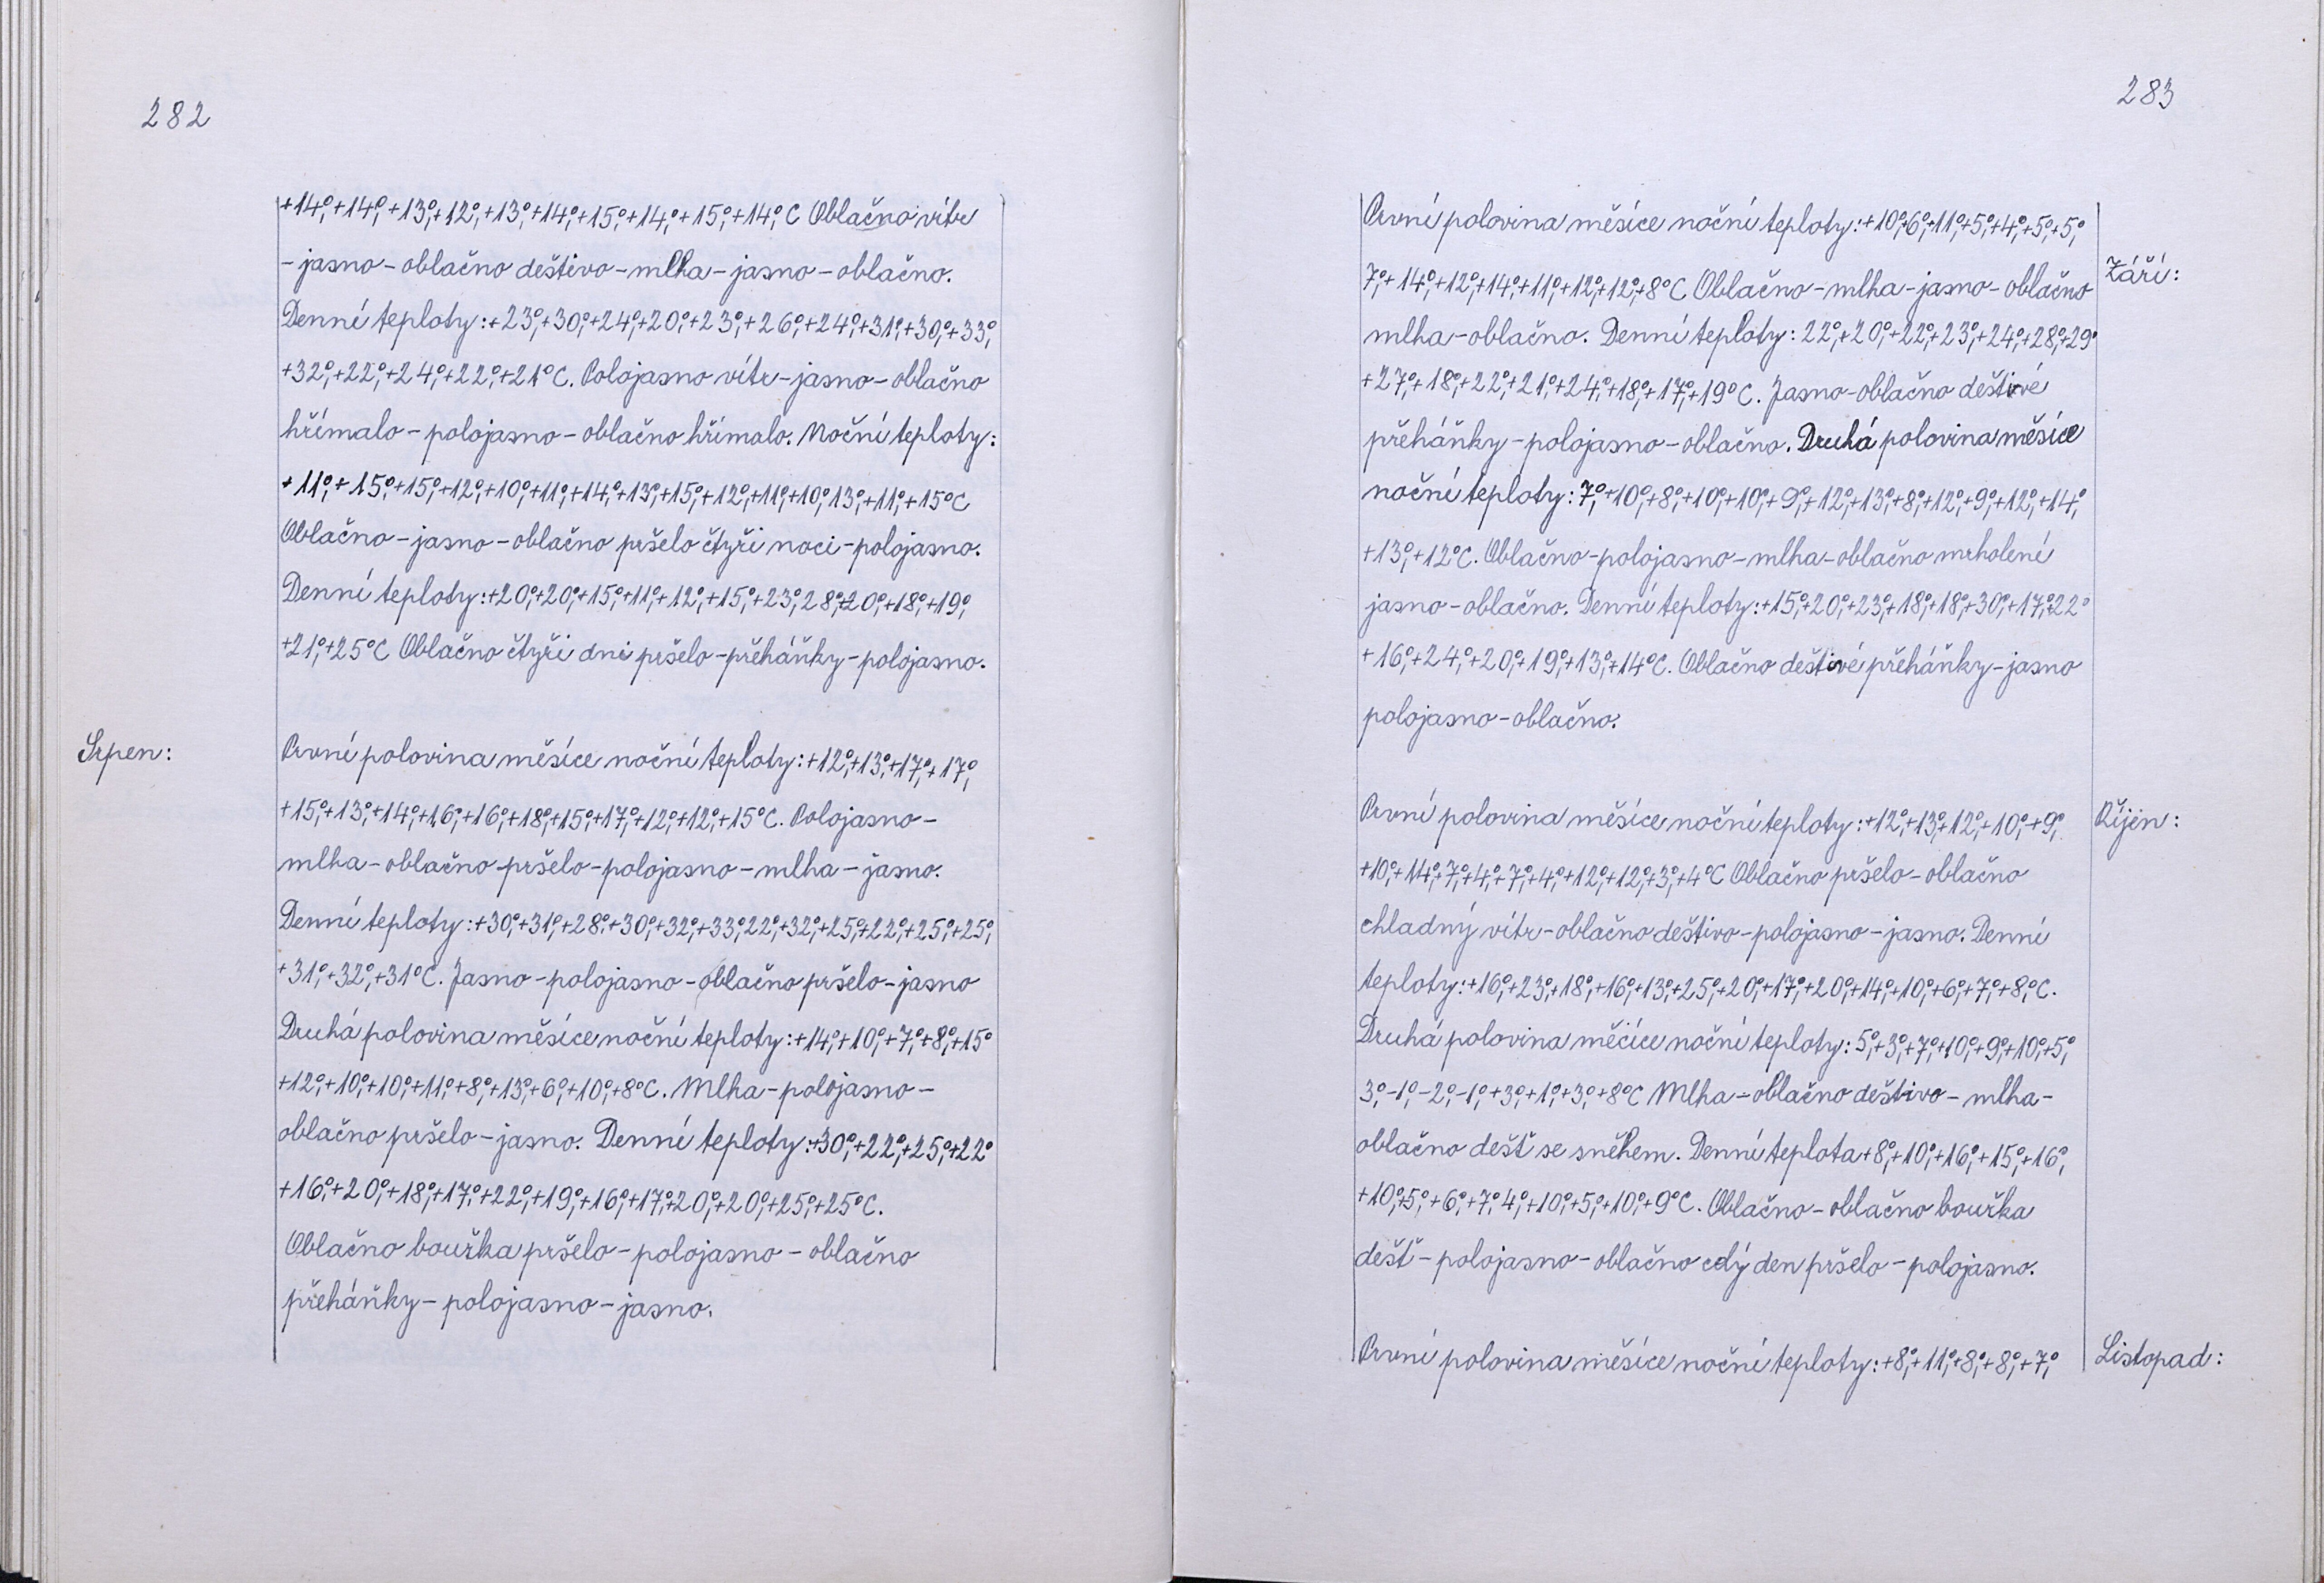 282
+14°,+14°,+13°,+12°,+13°,+14°,+15°,+14°,+15°,+14°,C Oblačno vítr
-jasno-oblačno deštivo-mlha-jasno-oblačno.
Denní teploty:+23°,+30°,+24°,+20°,+23°,+26°,+24°,+31°,+30°,+33°,
+32°,+22°,+24°,+22°,+21°C. Polojasno vítr-jasno-oblačno
hřímalo-polojasno-oblačno hřímalo. Noční teploty:
+11°,+15°,+15°,+12°,+10°,+11°,+14°,+13°,+15°,+12°,+11°,+10°,13°,+11°,+15°C
Oblačno-jasno-oblačno pršelo čtyři noci-polojasno.
Denní teploty:+20°,+20°,+15°,+11°,+12°,+15°,+23°,28°,+20°,+18°,+19°,
+21°,+25°C Oblačno čtyři dni pršelo-přeháňky-polojasno.
Srpen:
První polovina měsíce noční teploty:+12°,+13°,+17°,+17°,
+15°,+13°,+14°,+16°,+16°,+18°,+15°,+17°,+12°,+12°,+15°C. Polojasno-
mlha-oblačno pršelo-polojasno-mlha-jasno.
Denní teploty:+30°,+31°,+28°,+30°,+32°,+33°,22°,+32°,+25°,+22°,+25°,+25°,
+31°,+32°,+31°C. Jasno-polojasno-oblačno pršelo-jasno
Druhá polovina měsíce noční teploty:+14°,+10°,+7°,+8°,+15°
+12°,+10°,+10°,+11°,+8°,+13°,+6°,+10°,+8°C. Mlha-polojasno-
oblačno pršelo-jasno. Denní teploty:+30°,+22°,+25°,+22°
+16°,+20°,+18°,+17°,+22°,+19°,+16°,+17°,+20°,+20°,+25°,+25°C.
Oblačno bouřka pršelo-polojasno-oblačno
přeháňky-polojasno-jasno.
283
Září:
První polovina měsíce noční teploty:+10°,+6°,+11°,+5°,+4°,+5°,+5°,
7°,+14°,+12°,+14°,+11°,+12°,+12°,+8°C Oblačno-mlha-jasno-oblačno
mlha-oblačno. Denní teploty:22°,+20°,+22°,+23°,+24°,+28°,+29°
+27°,+18°,+22°,+21°,+24°,+18°,+17°,+19°C. Jasno-oblačno deštivé
přeháňky-polojasno-oblačno. Druhá polovina měsíce
noční teploty:7°,+10°,+8°,+10°,+10°,+9°,+12°,+13°,+8°,+12°,+9°,+12°,+14°,
+13°,+12°C. Oblačno-polojasno-mlha-oblačno mrholení
jasno-oblačno. Denní teploty:+15°,+20°,+23°,+18°,+18°,+30°,+17°,+22°
+16°,+24°,+20°,+19°,+13°,+14°C. Oblačno deštivé přeháňky-jasno
polojasno-oblačno.
Říjen:
První polovina měsíce noční teploty:+12°,+13°,+12°,+10°,+9°,
+10°,+14°,+7°,+4°,+7°,+4°,+12°,+12°,+3°,+4°C Oblačno pršelo-oblačno
chladný vítr-oblačno deštivo-polojasno-jasno. Denní
teploty:+16°,+23°,+18°,+16°,+13°,+25°,+20°,+17°,+20°,+14°,+10°,+6°,+7°,+8°,C.
Druhá polovina měčíce noční teploty:5°,+3°,+7°,+10°,+9°,+10°,+5°,
3°,-1°,-2°,-1°,+3°,+1°,+3°,+8°C Mlha-oblačno deštivo-mlha-
oblačno déšť se sněhem. Denní teplota+8°,+10°,+16°,+15°,+16°,
+10°,+5°,+6°,+7°,4°,+10°,+5°,+10°,+9°C. Oblačno-oblačno bouřka
déšť-polojasno-oblačno celý den pršelo-polojasno.
Listopad:
První polovina měsíce noční teploty:+8°,+11°,+8°,+8°,+7°,